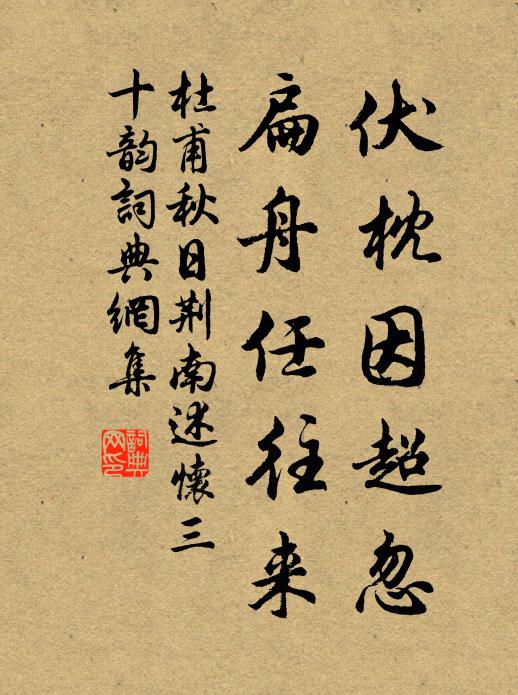 伏枕因超忽
扁舟任往来
杜甫秋日荆南述懷三
十韵詞典網集
詞典網印